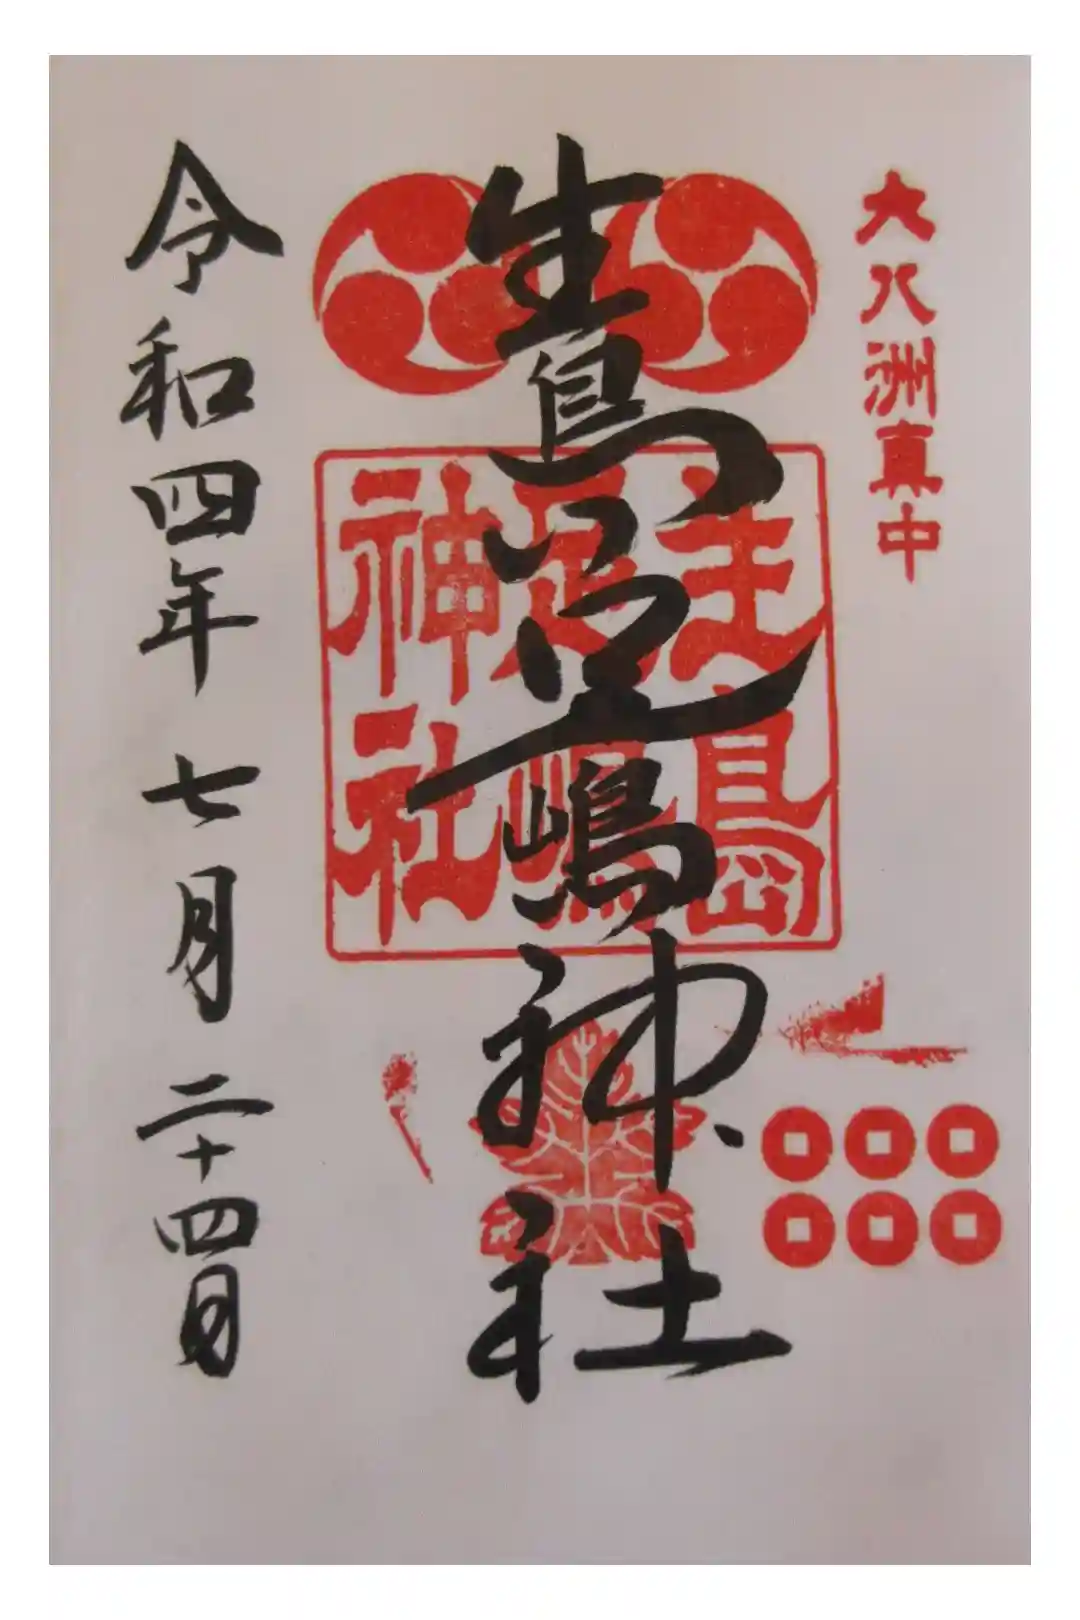 大八洲真中
生島足嶋神社
生島足嶋神社
令和四年 七月 二十四日